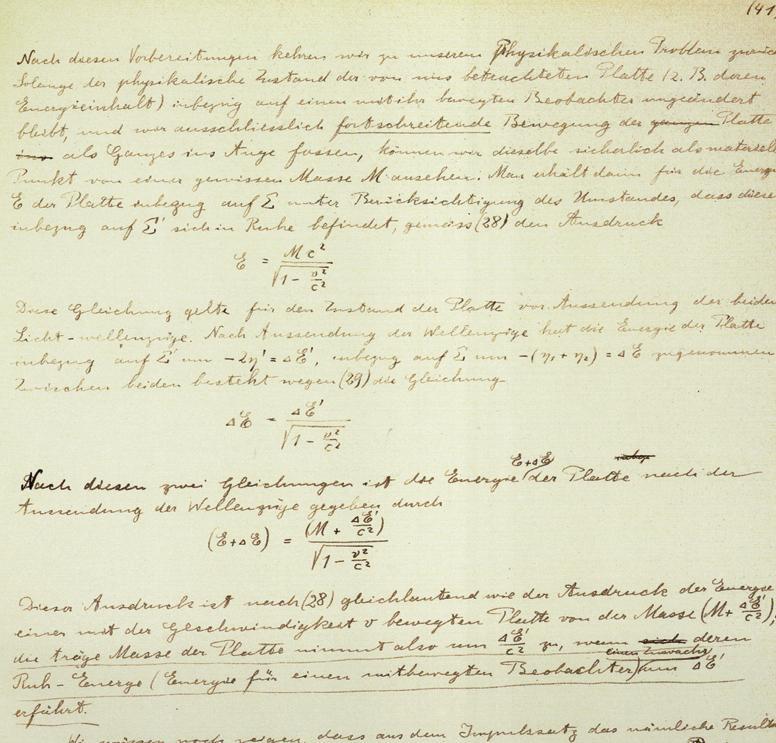 (41
Nach diesen Vorbereitungen kehren wir zu unserem physikalischen Problem zurück
Solange der physikalische Zustand der von uns betrachteten Platte (z. B. deren
Energieinhalt) inbezug auf einen mit ihr bewegten Beobachter ungeändert
bleibt, und wir ausschliesslich fortschreitende Bewegung der ganzen Platte
ins als Ganzes ins Auge fassen, können wir dieselbe sicherlich als materiell
Punkt von einer gewissen Masse M ansehen. Man erhält dann für die Energie
E der Platte inbezug auf Σ unter Berücksichtigung des Umstandes, dass diese
inbezug auf Σ' sich in Ruhe befindet, gemäss (28) den Ausdruck
E = Mc² / √(1 - v²/c²)
Diese Gleichung gelte für den Zustand der Platte vor Aussendung der beiden
Licht-wellenzüge. Nach Aussendung der Wellenzüge hat die Energie der Platte
inbezug auf Σ' um -2η' = ΔE', inbezug auf Σ um -(η₁ + η₂) = ΔE zugenommen
Zwischen beiden besteht wegen (29) die Gleichung
ΔE = ΔE' / √(1 - v²/c²)
Nach diesen zwei Gleichungen ist die Energie E+ΔE der Platte nach der
Aussendung der Wellenzüge gegeben durch
(E+ΔE) = (M + ΔE'/c²) / √(1 - v²/c²)
Dieser Ausdruck ist nach (28) gleichlautend wie der Ausdruck der Energie
einer mit der Geschwindigkeit v bewegten Platte von der Masse (M + ΔE'/c²);
die träge Masse der Platte nimmt also um ΔE'/c² zu, wenn sich deren
Ruh-Energie (Energie für einen mitbewegten Beobachter) einen Zuwachs um ΔE'
erfährt.
Wir müssen noch zeigen, dass aus dem Impulssatz das nämliche Resultat